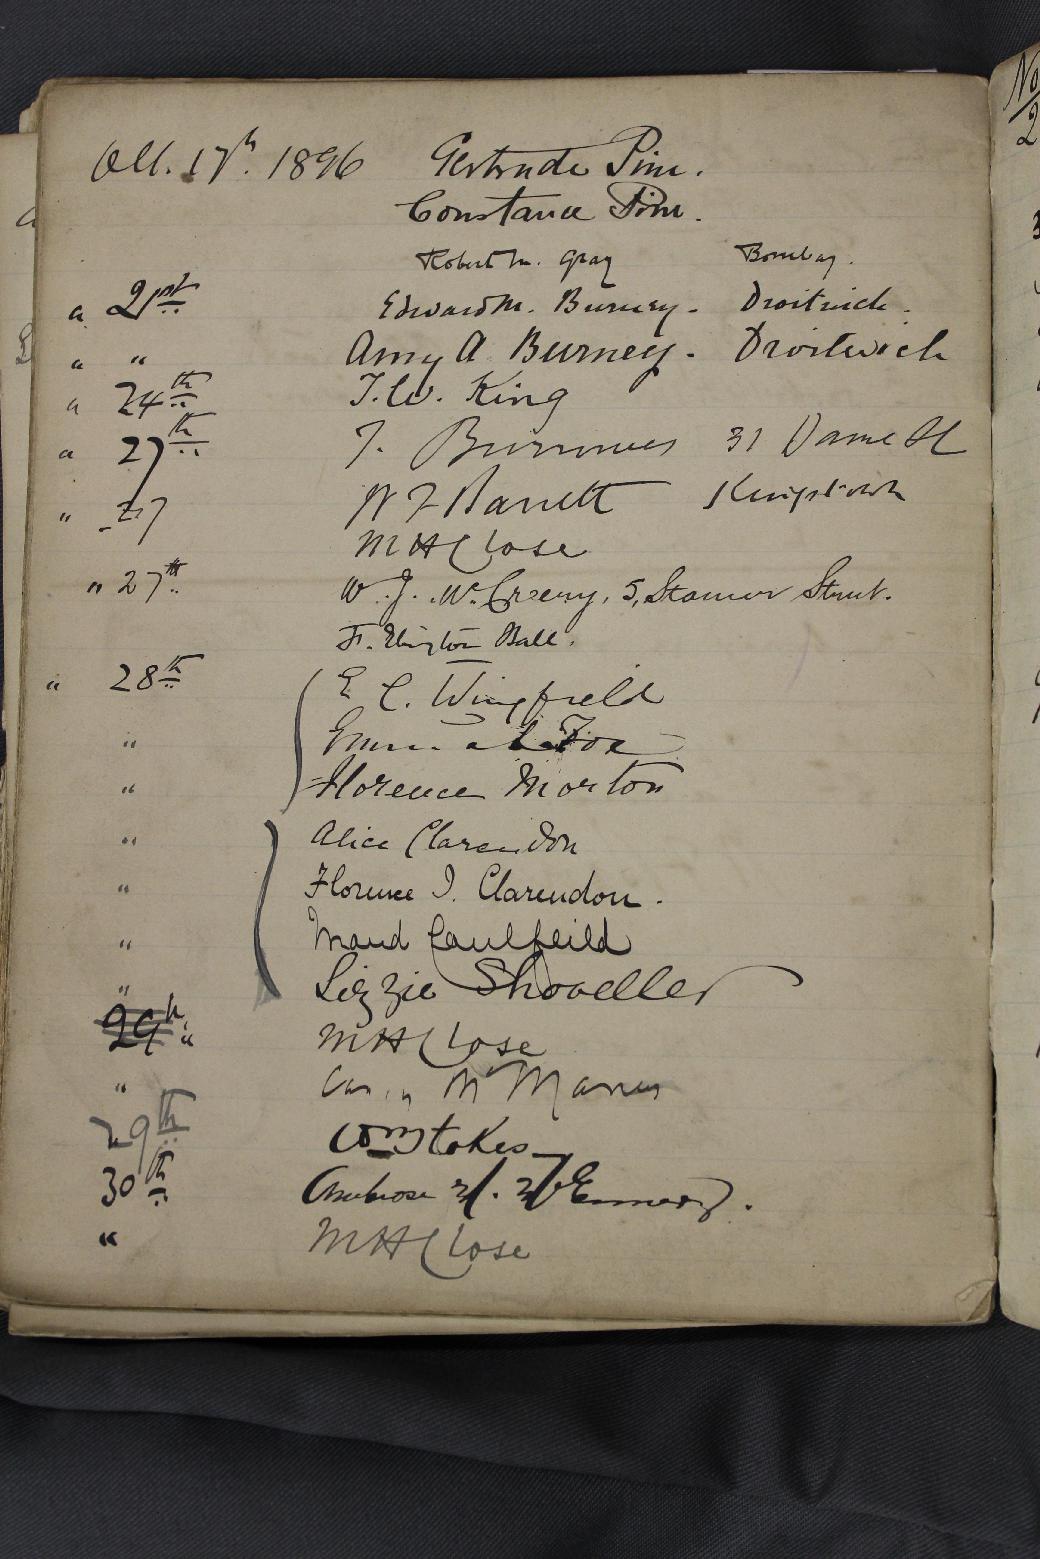 Oct. 17th. 1896 Gertrude Pim.
Constance Pim.
Robert M. Gray Bombay.
" 21st Edward M. Burney. Droitwich.
" " Amy A Burney. Droitwich
" 24th T. W. King
" 27th J. Burrowes 31 Dame St
" 27 W F Barrett Kingstown
M H Close
" 27th W. J. McCreery, 5, Stamer Street.
F. Elrington Ball.
" 28th E C. Wingfield
" Fox
" Florence Morton
" Alice Clarendon
" Florence I. Clarendon.
" Maud Caulfeild
" Lizzie Shoveller
29th " M H Close
" McManus
29th Wm Stokes
30th Ambrose
" M H Close